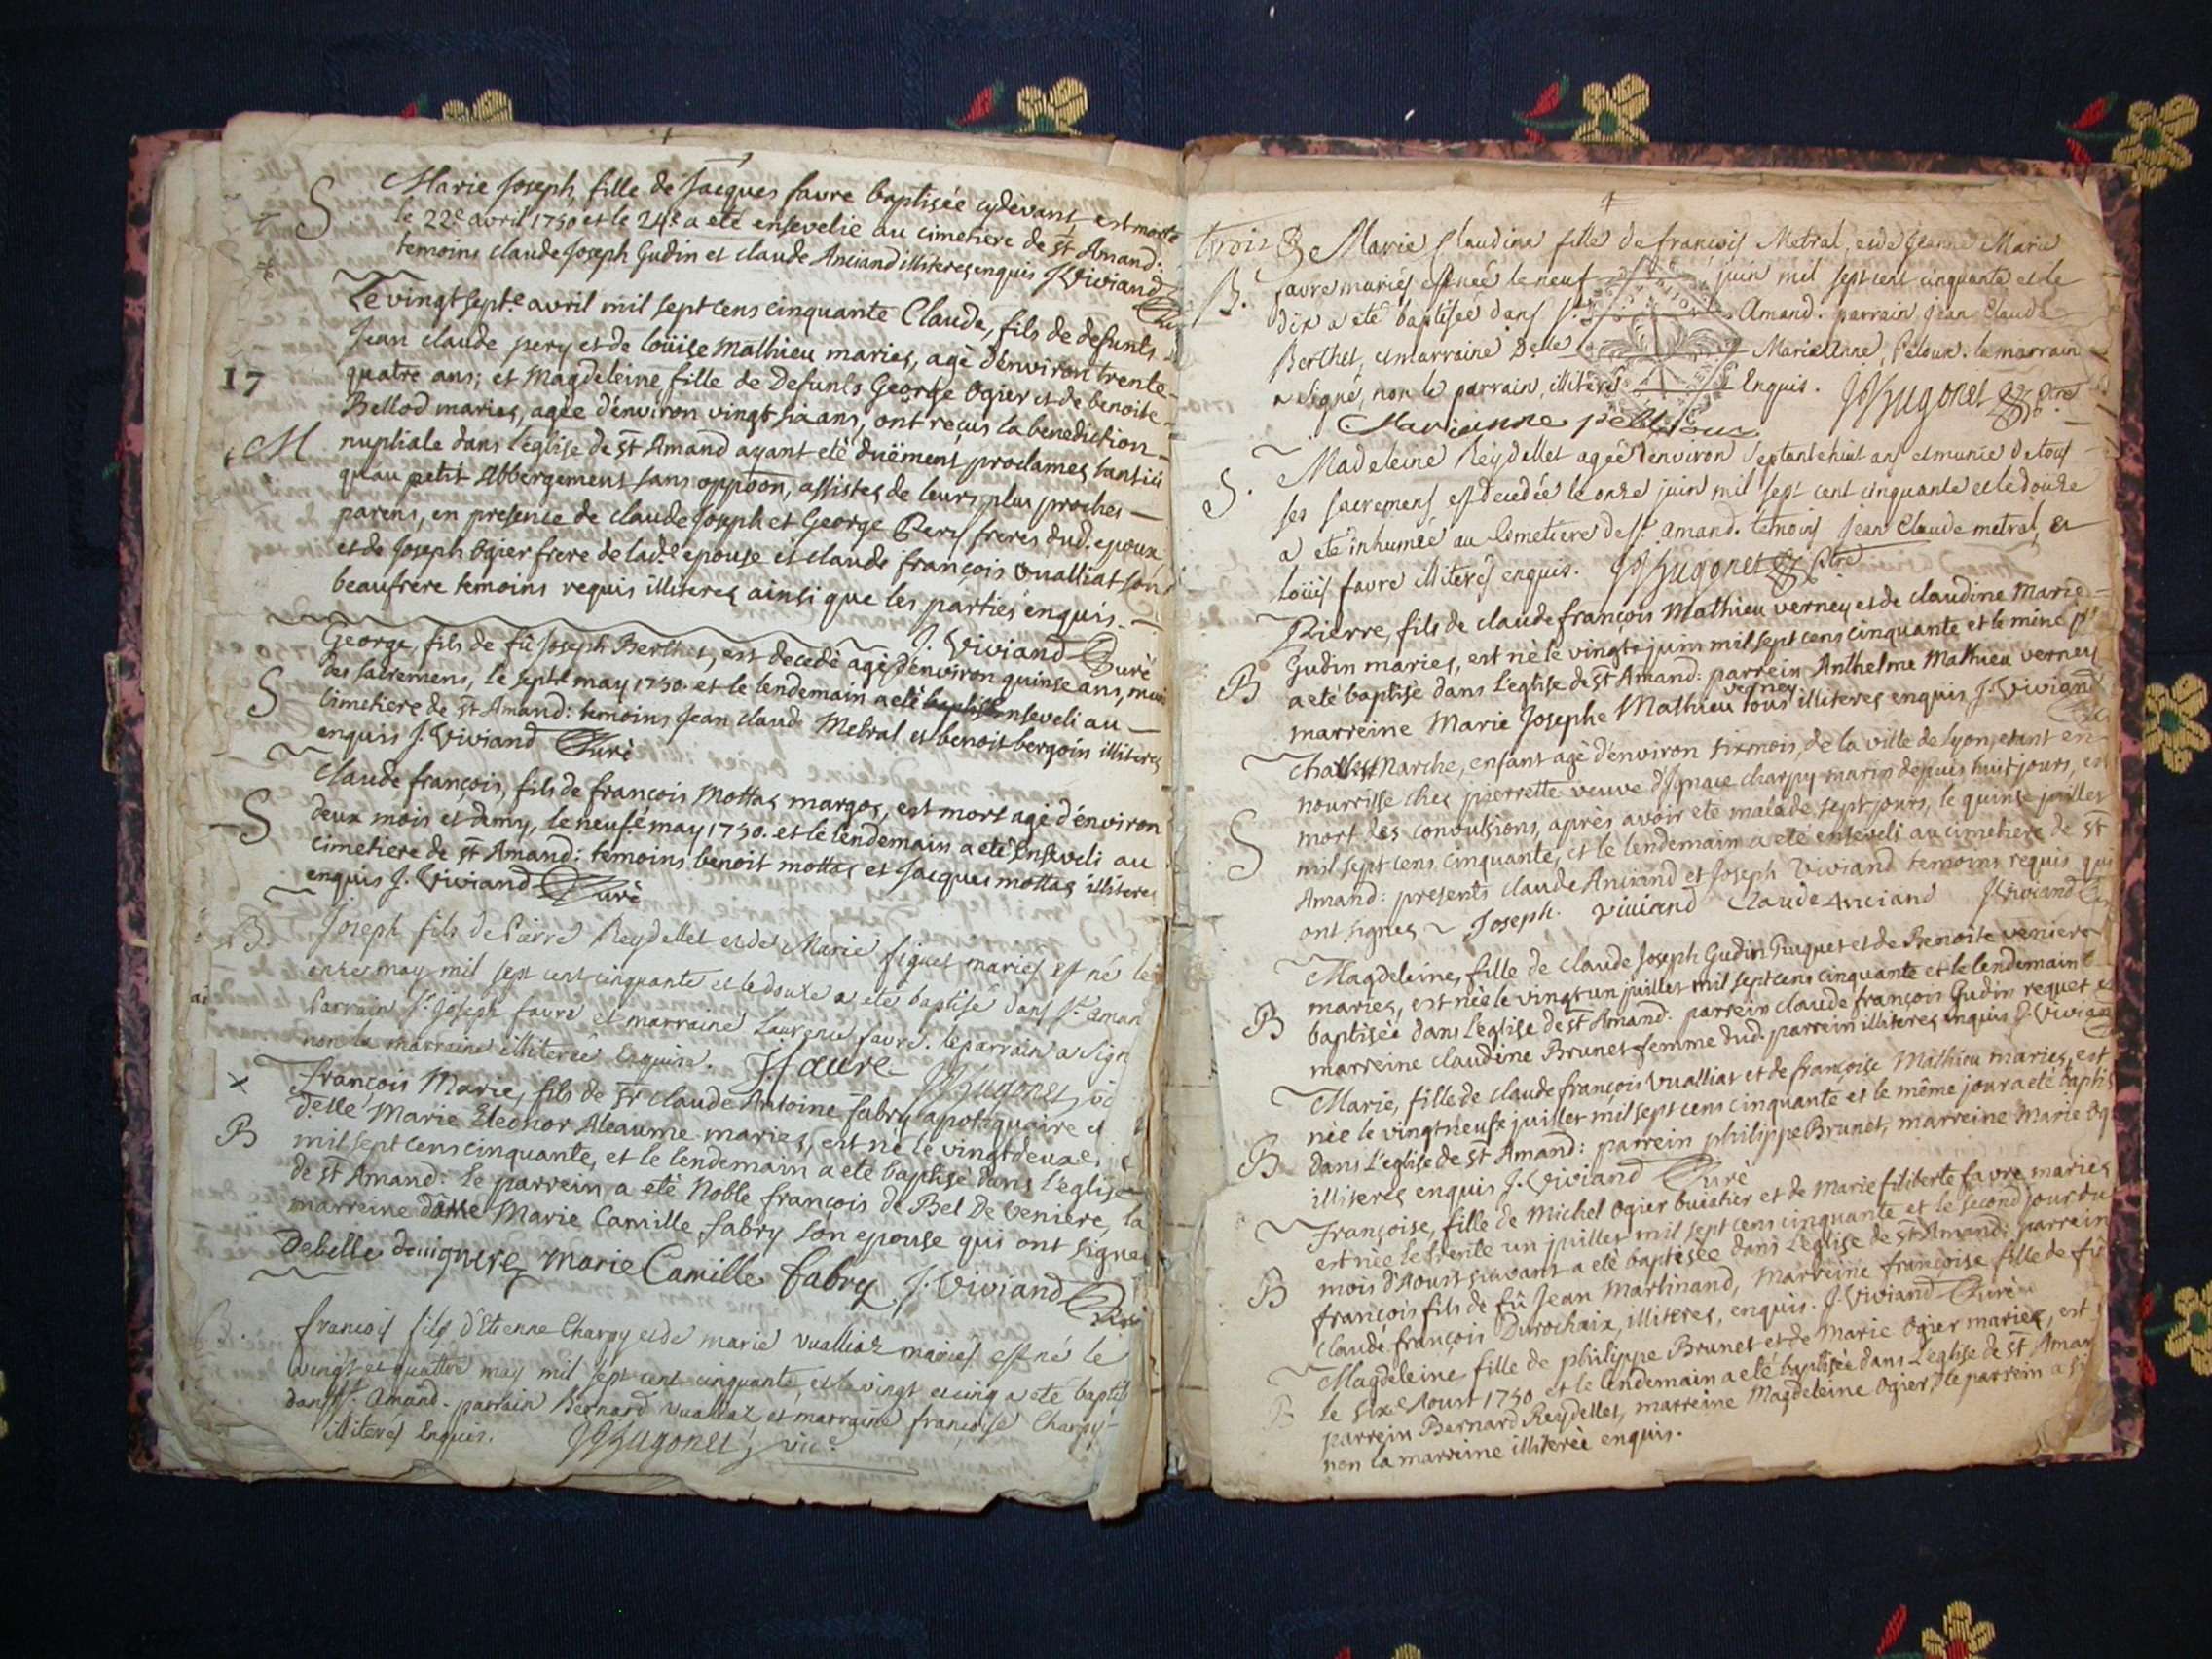 Marie Joseph, fille de Jacques favre baptisée cydevant, est morte
S le 22e avril 1750 et le 24e a eté ensevelie au cimetiere de st Amand:
temoins claude Joseph Gudin et claude Anciand illiteres enquis J. Viviand
Le vingtsepte avril mil sept cens cinquante Claude, fils de defunts
Jean claude pery et de loüise Mathieu mariés, agé d'environ trente-
17
quatre ans; et Magdeleine fille de Defunts George Ogier et de benoite
Bellod mariés, agée d'environ vingt six ans, ont reçus la benediction
M nuptiale dans l'eglise de st Amand ayant eté duëment proclamés tant ici
qu'au petit Abbergement sans oppoõn, assistés de leurs plus proches
parens, en presence de claude Joseph et George Pery freres dud. epoux
et de Joseph Ogier frere de lad.e epouse et claude françois Vualliat son
beaufrere temoins requis illiteres ainsi que les parties enquis.
J. Viviand Curé
George, fils de fû Joseph Berthet, est decedé agé d'environ quinse ans, muni
S Des sacremens, le septe may 1750. et le lendemain a eté enseveli au
cimetiere de st Amand: temoins Jean claude Metral et benoit bergoin illiteres
enquis J. Viviand Curé
Claude françois, fils de françois Mottas margos, est mort agé d'environ
S deux mois et demy, le neufe may 1750. et le lendemain a eté Enseveli au
cimetiere de st Amand: temoins benoit mottas et Jacques mottas illiteres
enquis J. Viviand Curé
B. Joseph fils de Pierre Reydellet et de Marie figuet mariés est né le
onze may mil sept cent cinquante et le douze a eté baptisé dans St. aman
Parrain Sr. Joseph favre et marraine Laurence favre. le parrain a sign
non la marraine illiterée Enquise. J: favre JHugonet, vi
x françois Marie, fils de sr claude Antoine fabry apotiquaire et
delle Marie Eleonor Aleaume mariés, est né le vingtdeuxe
B mil sept cens cinquante, et le lendemain a eté baptisé dans l'eglise
de st Amand: le parrein a eté Noble françois de Bel De Veniere, la
marreine dame Marie Camille fabry son epouse qui ont signé
Debelle marie Camille fabry J. Viviand Curé
B. francois fils d'Etienne Charpy et de marie Vualliaz mariés est né le
vingt et quattre may mil sept cent cinquante, et le vingt et cinq a eté baptis
dans St. Amand. parrain Bernard Vualliaz et marraine francoise Charpy
illiterés Enquis. JHugonet, vic.e
4
trois Marie Claudine fille de francois Metral, et de Jeanne Marie
B. favre mariés est née le neuf juin mil sept cent cinquante et le
dix a eté baptisée dans St. Amand. parrain Jean Claude
Berthet, et marraine Delle Marie Anne Peloux. la marrain
a signé, non le parrain, illiteré Enquis. JHugonet Ptre
Marianne
Madeleine Reydellet agée d'environ septante huit ans et munie de tous
S. ses sacremens est decedée le onze juin mil sept cent cinquante et le douze
a eté inhumée au Cimetiere de St. amand. temoins jean Claude metral, et
loüis favre illiterés enquis. JHugonet Ptre
Pierre, fils de claude françois Mathieu verney et de claudine Marie
Gudin mariés, est né le vingte juin mil sept cens cinquante et le même jr
B a eté baptisé dans l'eglise de st Amand: parrein Anthelme Mathieu verney
marreine Marie Josephe Mathieu verney tous illiteres enquis J. Viviand
Marche, enfant agé d'environ sixmois, de la ville de Lyon, etant en
nourrisse chés pierrette veuve d'Ignace charpy marin depuis huit jours, est
S mort des convulsions, après avoir eté malade sept jours, le quinse juillet
mil sept cens cinquante, et le lendemain a eté enseveli au cimetiere de st
Amand: presents claude Anciand et Joseph Viviand temoins requis qui
ont signés Joseph. viviand Claude Anciand J. Viviand
Magdeleine, fille de claude Joseph Gudin et de Benoite veniere
mariés, est née le vingtun juillet mil sept cens cinquante et le lendemain
B baptisée dans l'eglise de st Amand. parrein claude françois Gudin
marreine claudine Brunet femme dud. parrein illiteres enquis J. Viviand
Marie, fille de claude françois Vualliat et de françoise Mathieu mariés, est
née le vingtneufe juillet mil sept cens cinquante et le même jour a eté baptis
B dans l'eglise de st Amand: parrein philippe Brunet, marreine Marie Og
illiteres enquis J. Viviand Curé
Françoise, fille de Michel Ogier et de Marie filiberte favre mariés
est née le trente un juillet mil sept cens cinquante et le second jour du
B mois d'Aoust suivant a eté baptisée dans l'eglise de st Amand: parrein
françois fils de fû Jean Martinand, Marreine françoise fille de fû
claude françois Durochaix, illiteres, enquis. J. Viviand Curé
Magdeleine fille de philippe Brunet et de Marie Ogier mariés, est
B le sixe Aoust 1750 et le lendemain a eté baptisée dans l'eglise de st Aman
parrein Bernard Reydellet, marreine Magdeleine Ogier, le parrein a si
non la marreine illiterée enquis.